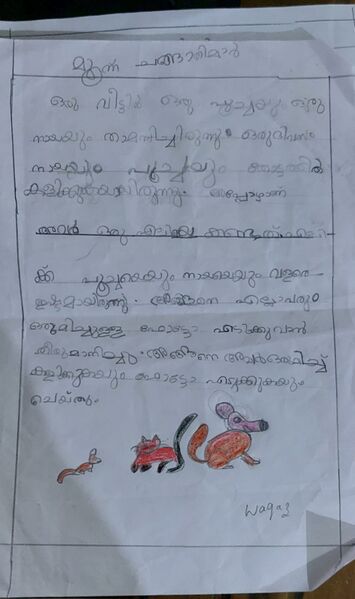 മൂന്ന് ചങ്ങാതിമാർ
ഒരു വീട്ടിൽ ഒരു പൂച്ചയും ഒരു
നായയും താമസിച്ചിരുന്നു. ഒരുദിവസം
നായയും പൂച്ചയും തോട്ടത്തിൽ
കളിക്കുകയായിരുന്നു. അപ്പോഴാണ്
അവർ ഒരു എലിയെ കണ്ടത്. എലി
ക്ക് പൂച്ചയെയും നായയെയും വളരെ
ഇഷ്ടമായിരുന്നു. അങ്ങനെ എല്ലാവരും
ഒരുമിച്ചുള്ള ഫോട്ടോ എടിക്കുവാൻ
തീരുമാനിച്ചു. അങ്ങനെ അവർ ഒരുമിച്ച്
കളിക്കുകയും ഫോട്ടോ എടുക്കുകയും
ചെയ്തു.
waqaz